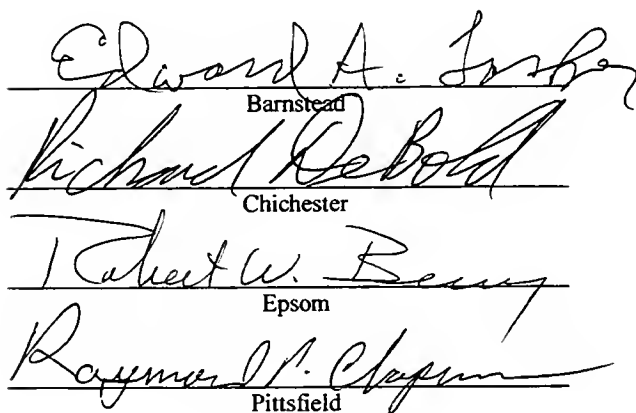 Edward A.
Barnstead
Richard DeBold
Chichester
Robert W. Berry
Epsom
Raymond P. Chapman
Pittsfield